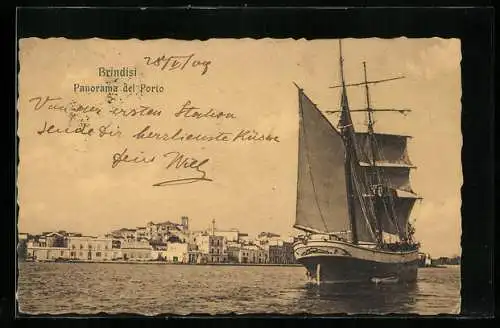 Brindisi
28/V 09
Panorama del Porto
Von der ersten Station
sende Dir herzlichste Küsse
Dein Will